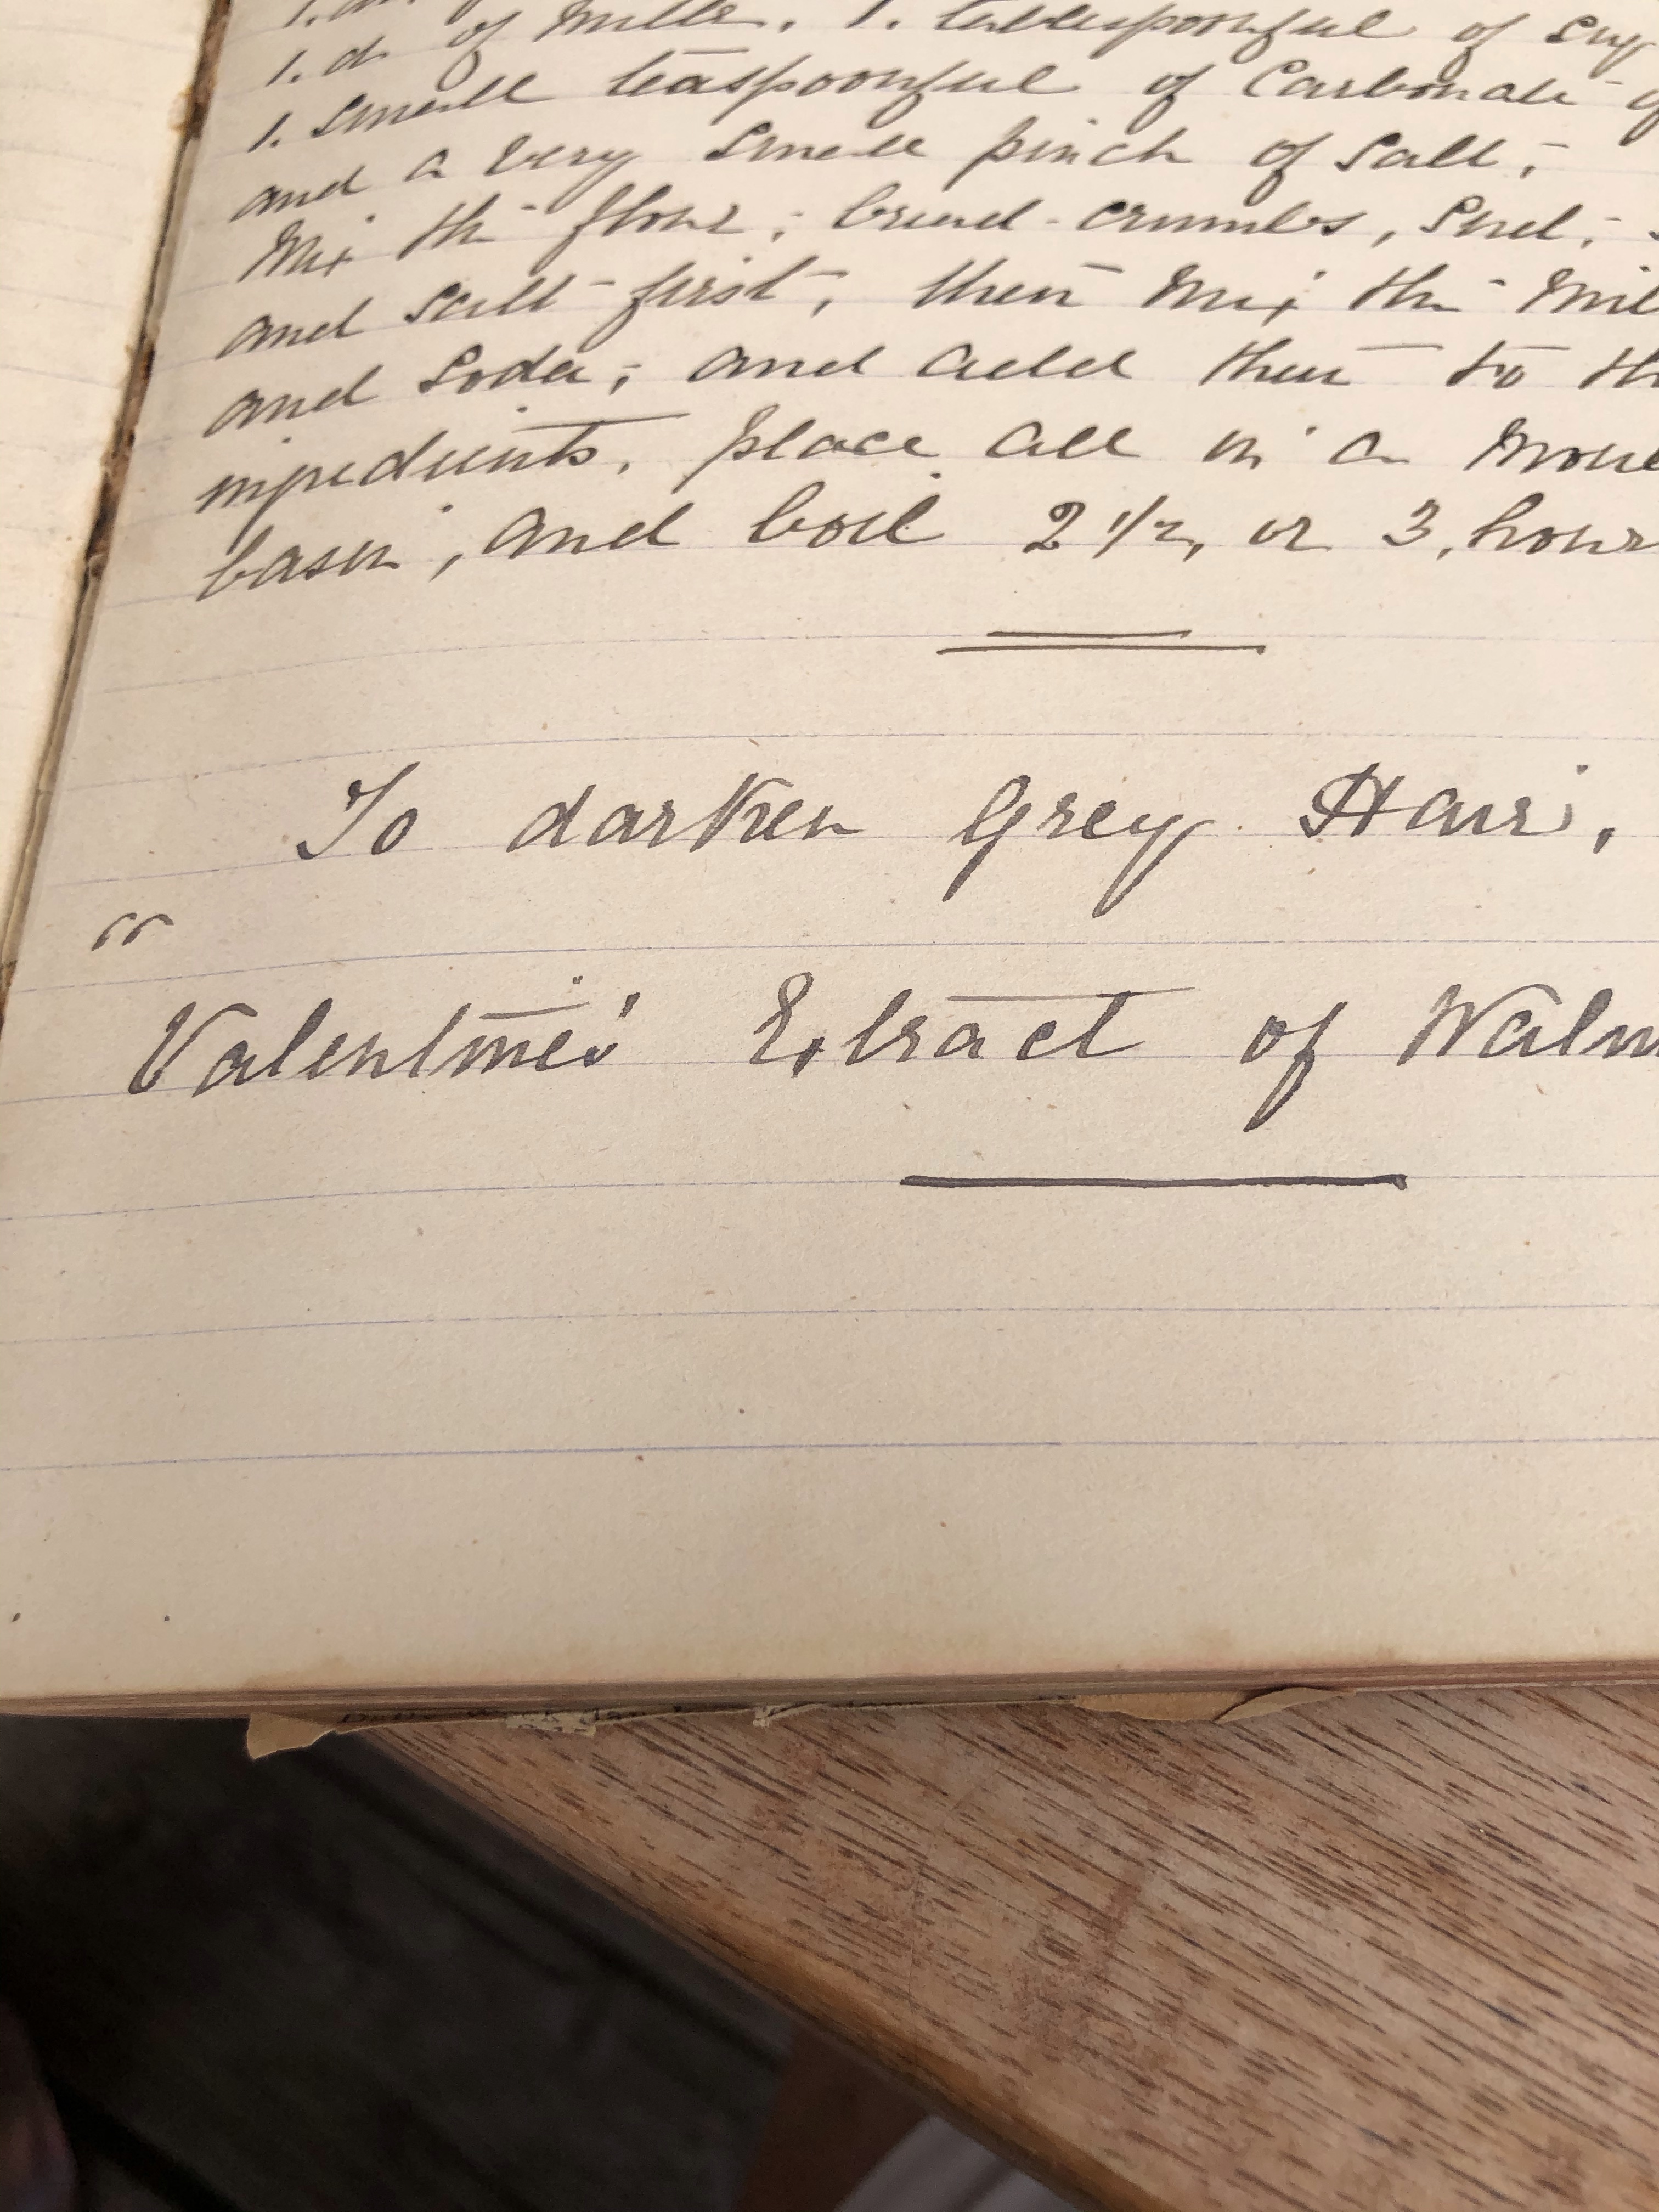 1. d of Milk, 1. tablespoonful of Sug
1. Small teaspoonful of Carbonate of
and a very small pinch of Salt,
Mix the flour, bread-crumbs, Suet,
and salt first, then Mix the Mil
and Soda, and add them to th
ingredients. place all in a Mould
basin, and boil 2 1/2, or 3, hours
To darken Grey Hair,
"
Valentine's Extract of Waln